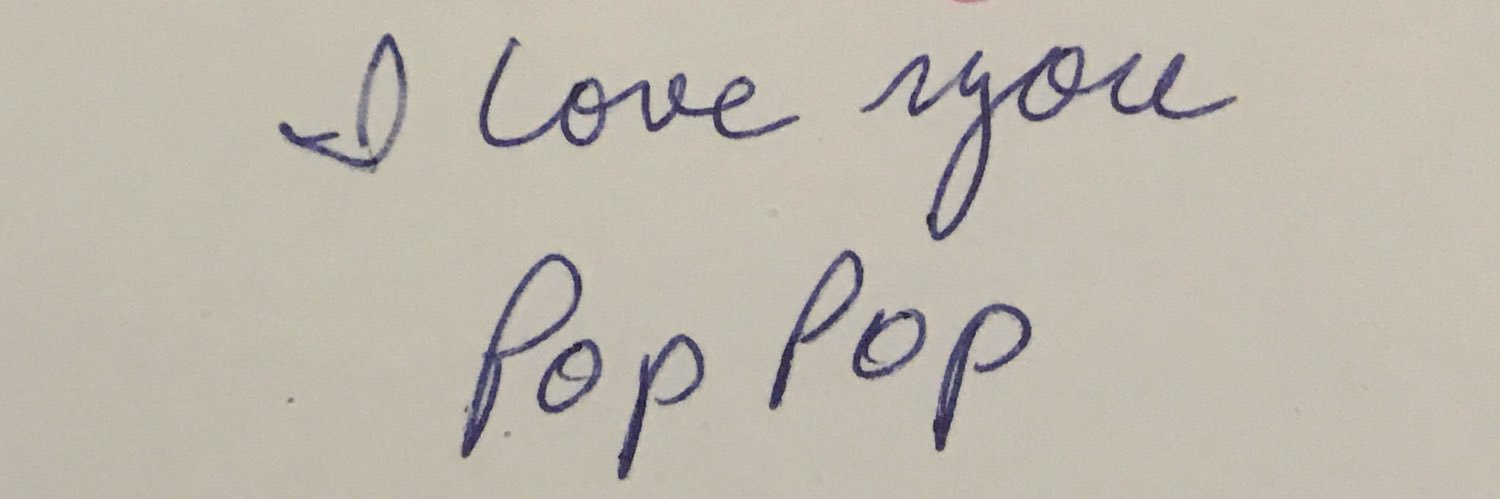 I love you
Pop Pop